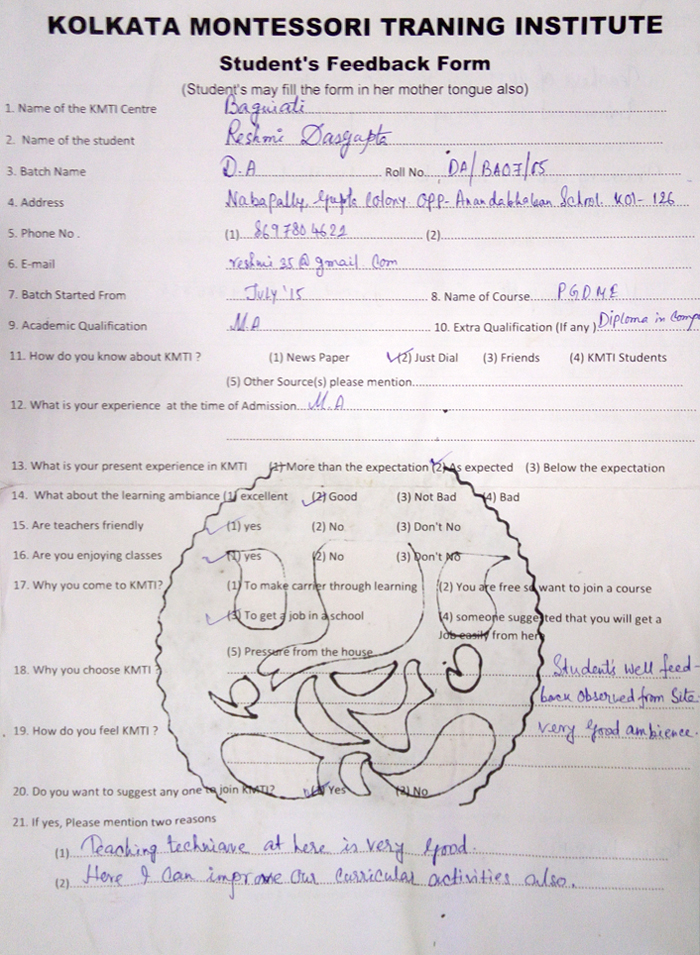 KOLKATA MONTESSORI TRANING INSTITUTE
Student's Feedback Form
(Student's may fill the form in her mother tongue also)
1. Name of the KMTI Centre Baguiati
2. Name of the student Reshmi Dasgupta
3. Batch Name D.A Roll No. DA/BA07/05
4. Address Nabapally, Gupta Colony OPP- Anandabhaban School. KOl- 126
5. Phone No. (1) 8697804622 (2)
6. E-mail reshmi35@gmail.com
7. Batch Started From July '15 8. Name of Course PGDME
9. Academic Qualification M.A 10. Extra Qualification (If any) Diploma in Comp
11. How do you know about KMTI ? (1) News Paper (2) Just Dial (3) Friends (4) KMTI Students
(5) Other Source(s) please mention
12. What is your experience at the time of Admission M.A
13. What is your present experience in KMTI (1) More than the expectation (2) As expected (3) Below the expectation
14. What about the learning ambiance (1) excellent (2) Good (3) Not Bad (4) Bad
15. Are teachers friendly (1) yes (2) No (3) Don't No
16. Are you enjoying classes (1) yes (2) No (3) Don't No
17. Why you come to KMTI? (1) To make carrier through learning (2) You are free so want to join a course
(3) To get a job in a school (4) someone suggested that you will get a
Job easily from here
(5) Pressure from the house
18. Why you choose KMTI ? Student's well feed-
back observed from Site.
19. How do you feel KMTI ? very good ambience.
20. Do you want to suggest any one to join KMTI? (1) Yes (2) No
21. If yes, Please mention two reasons
(1) Teaching technique at here is very good.
(2) Here I can improve our curricular activities also.